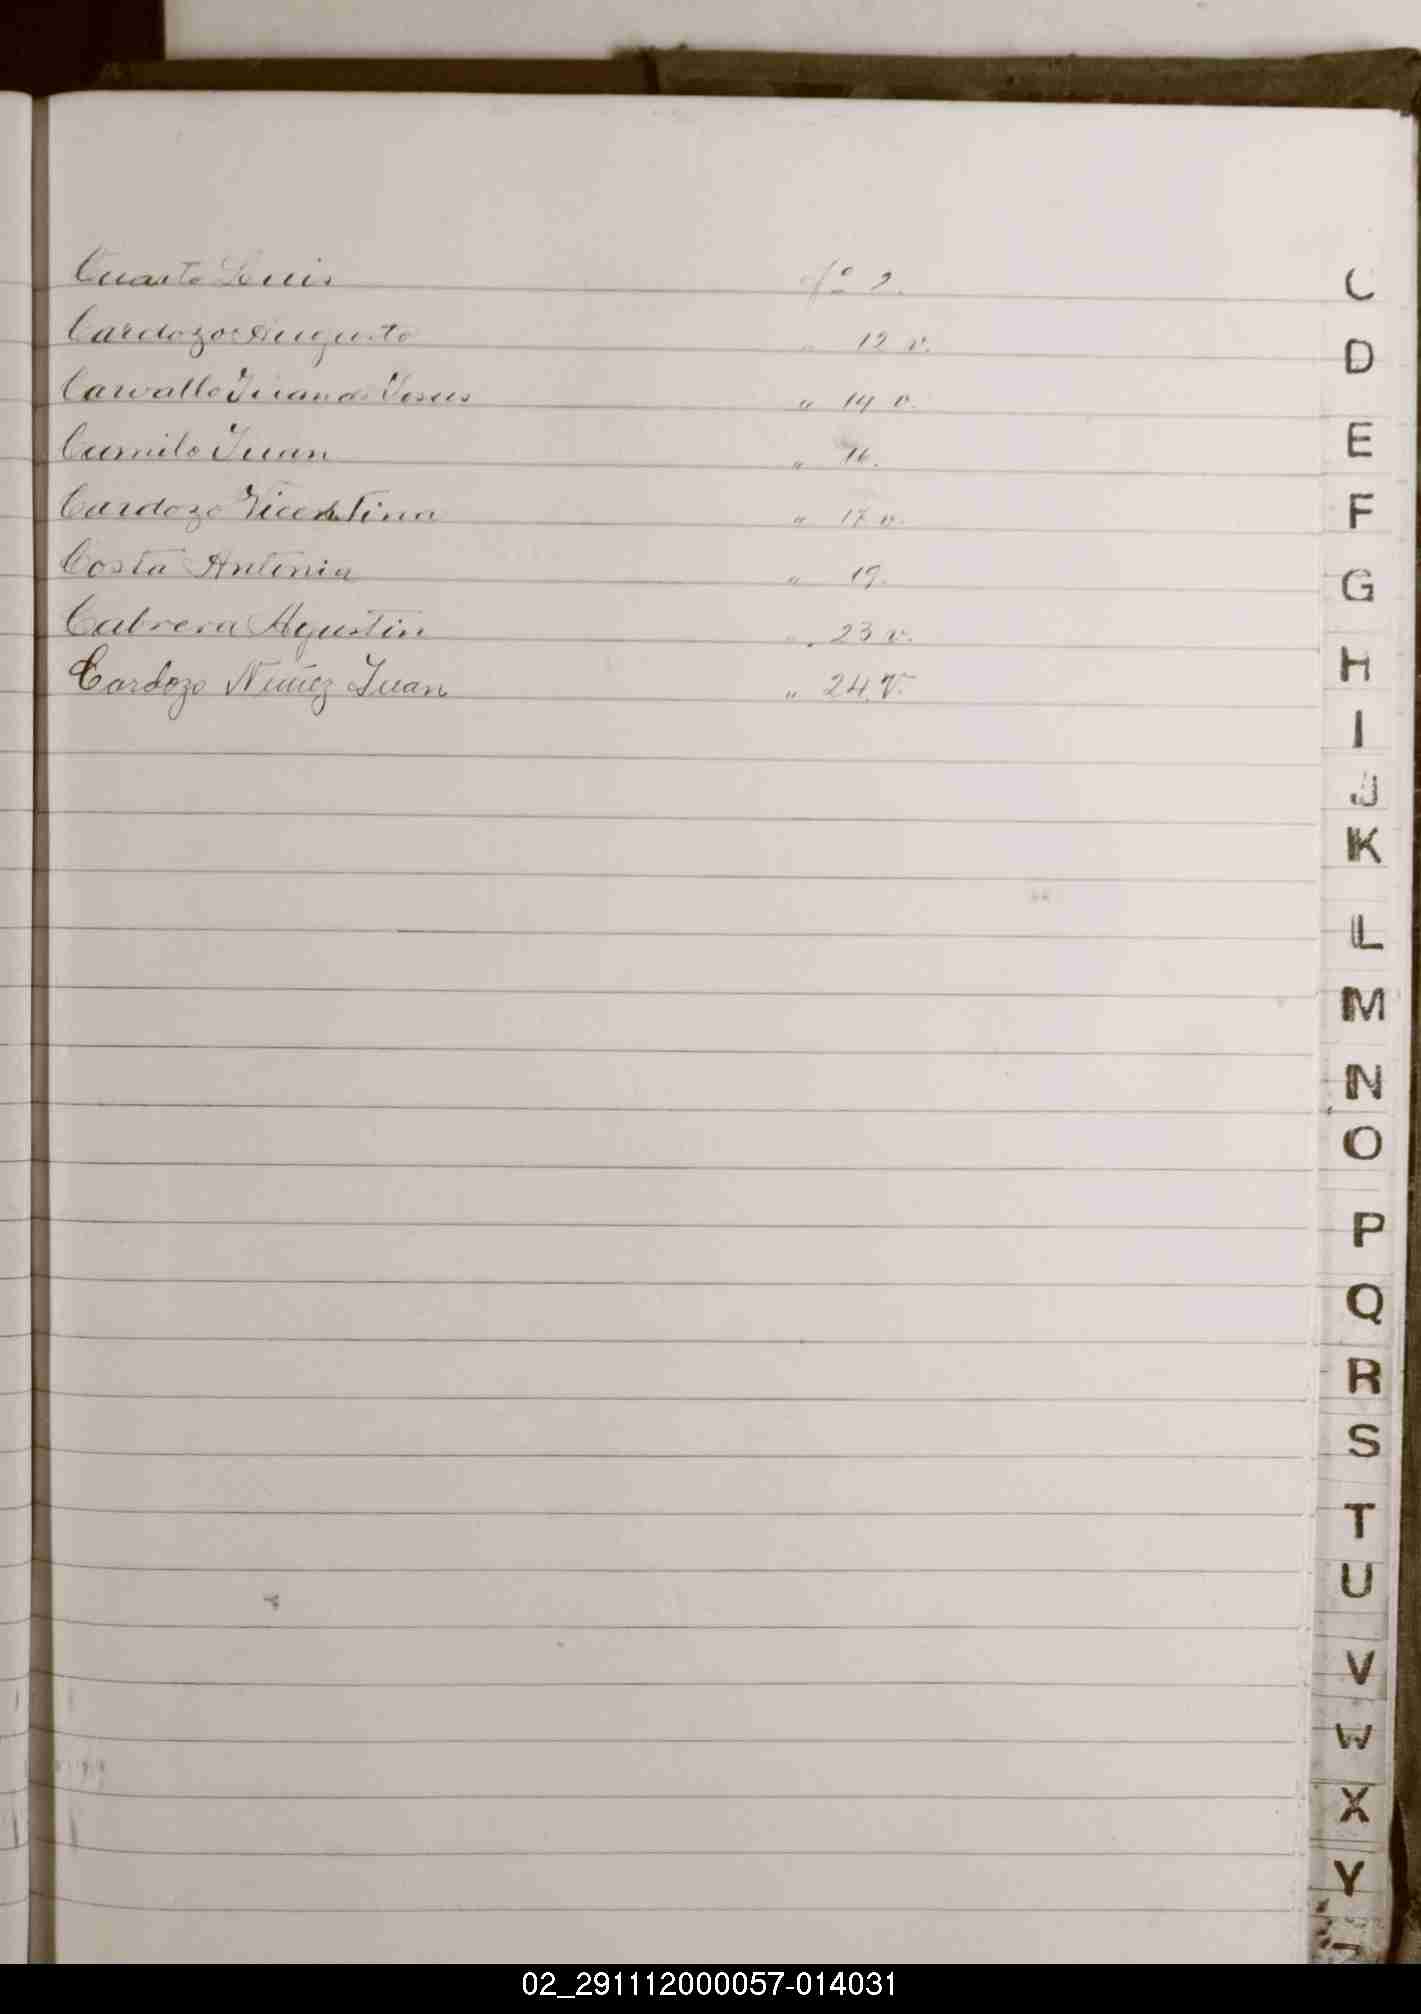 Cuarto Luis fº 2.
Cardozo Augusto " 12 v.
Carvallo Juan de Jesus " 14 v.
Cumilo Juan " 16.
Cardozo Vicentina " 17 v.
Costa Antonia " 19.
Cabrera Agustin " 23 v.
Cardozo Nuñez Juan " 24. V.
C
D
E
F
G
H
I
J
K
L
M
N
O
P
Q
R
S
T
U
V
W
X
Y
02_291112000057-014031